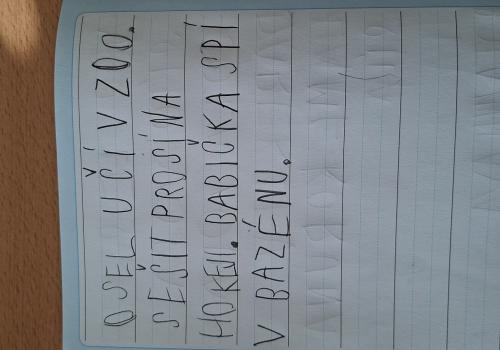 OSEL UČÍ V ZOO.
SEŠIT PROSÍ NA
HOKEJI. BABIČKA SPÍ
V BAZÉNU.